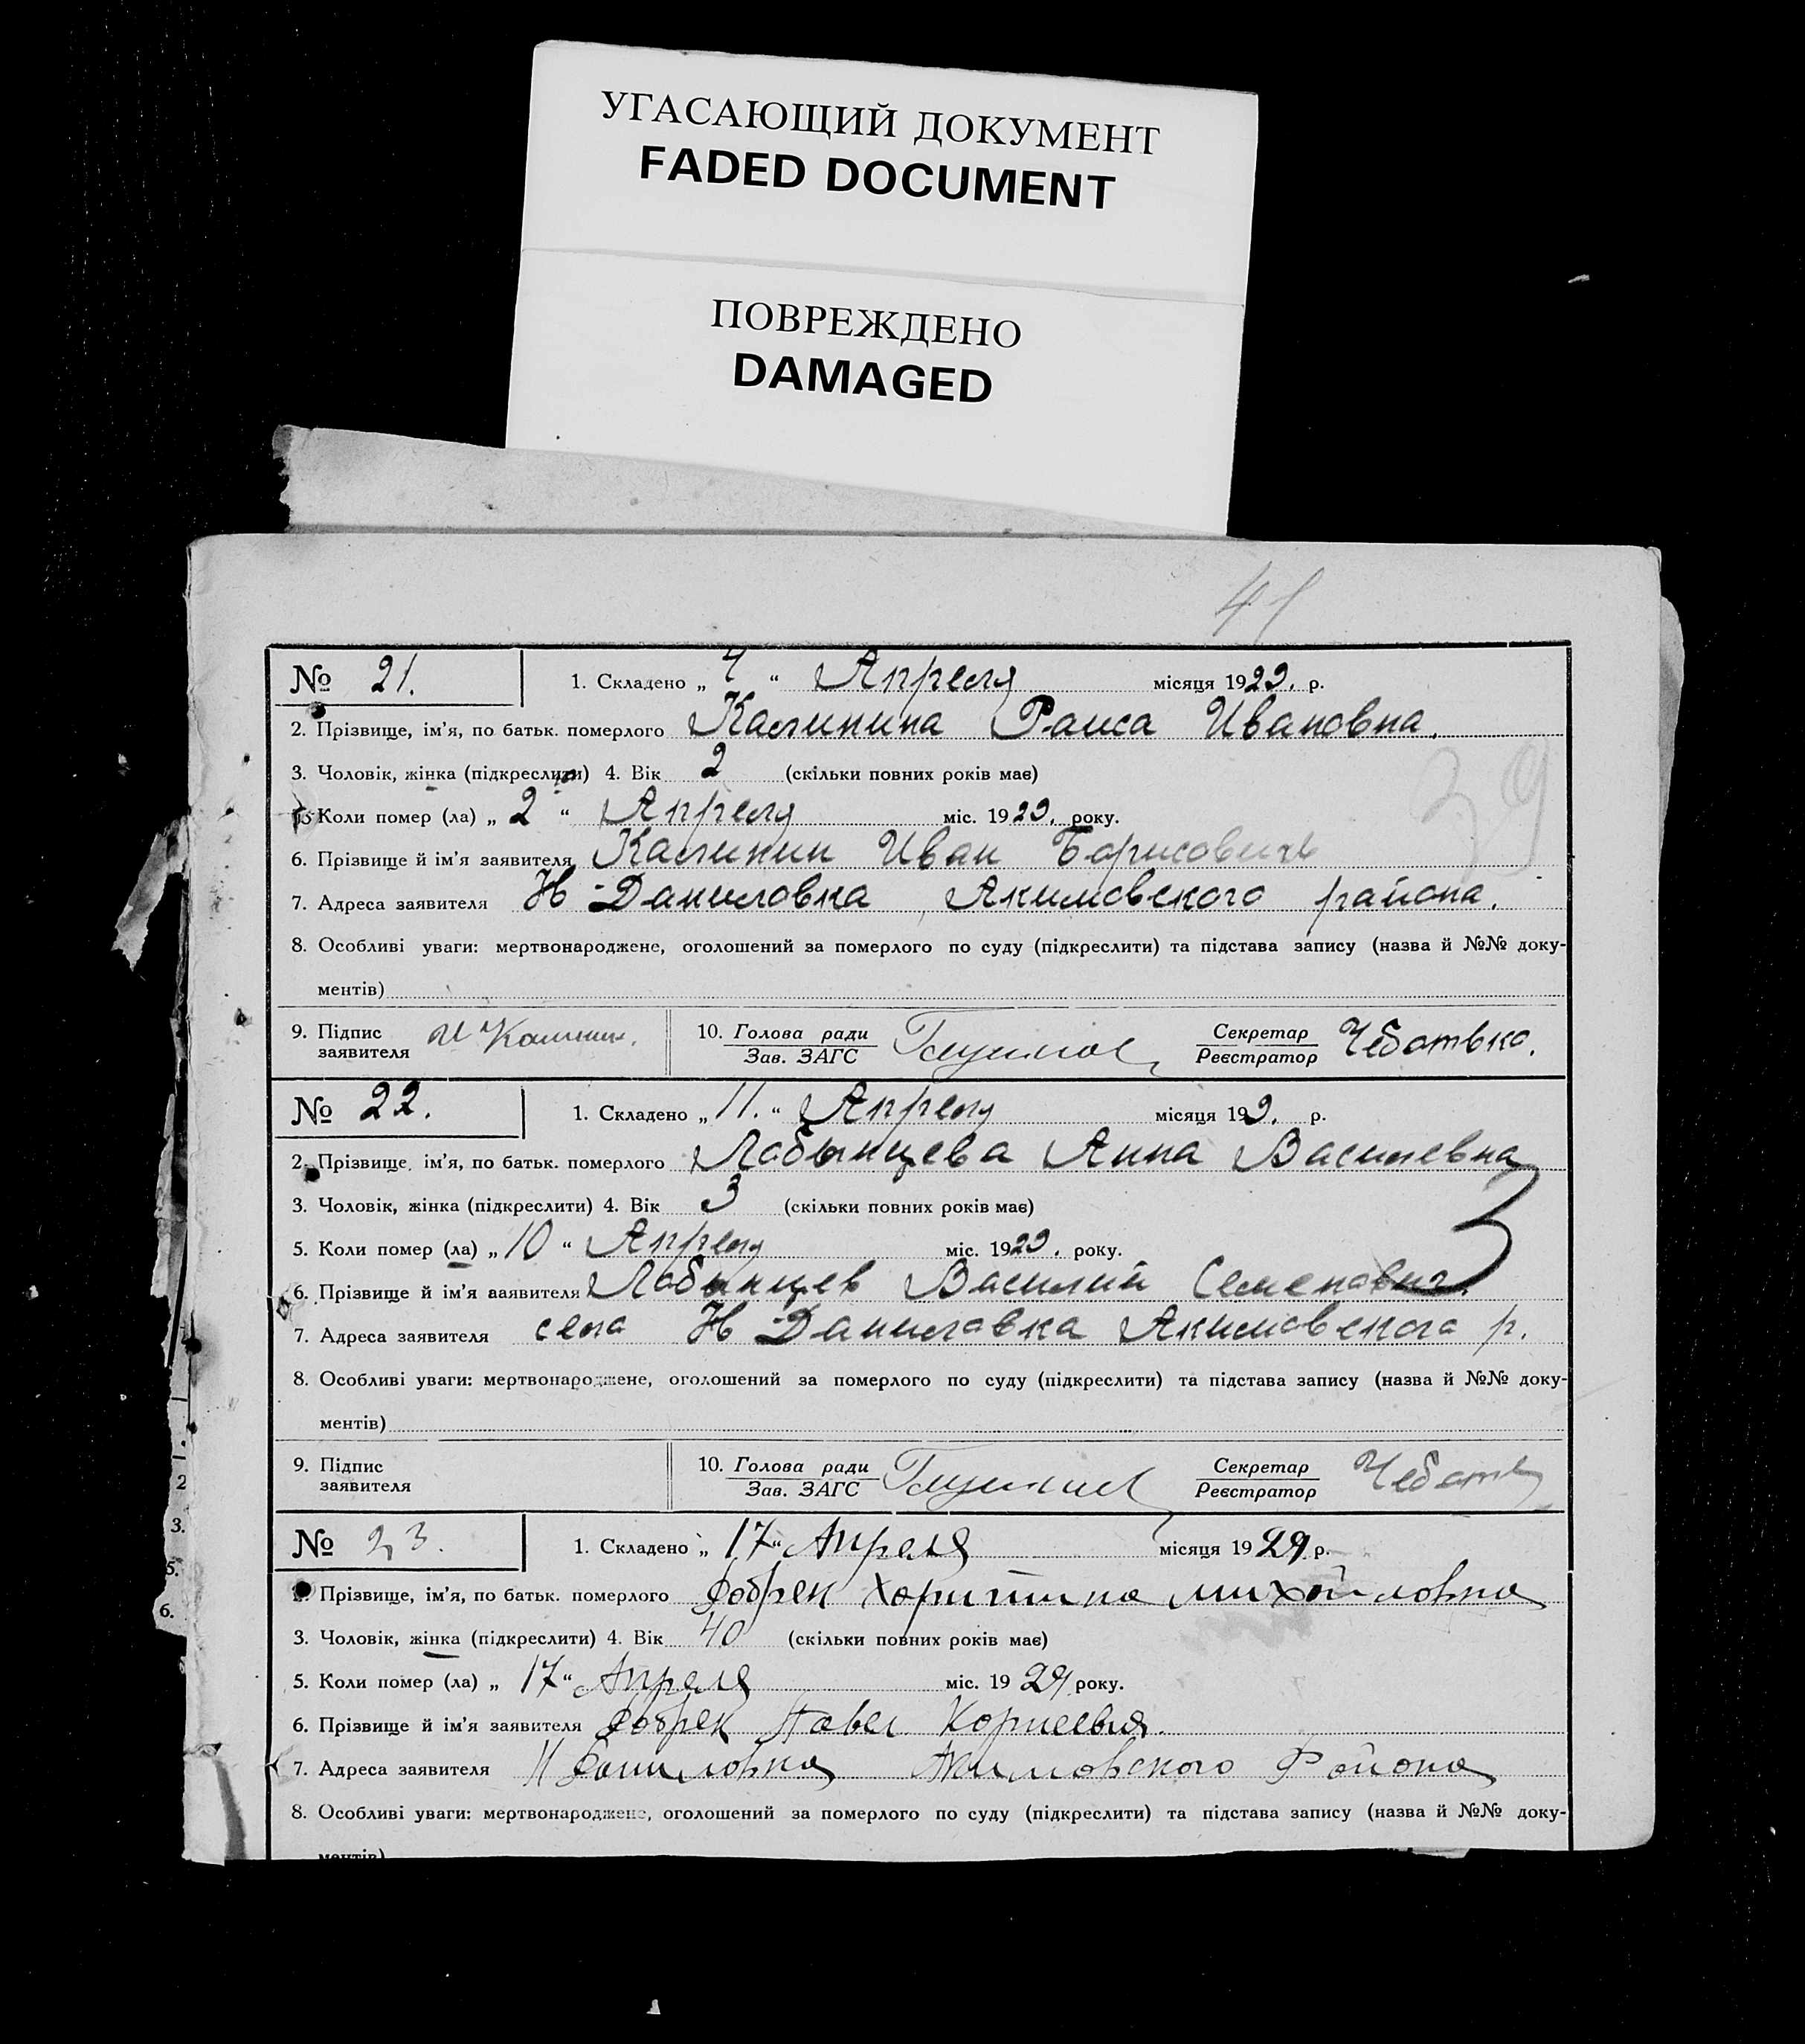 УГАСАЮЩИЙ ДОКУМЕНТ
FADED DOCUMENT
ПОВРЕЖДЕНО
DAMAGED
41
№ 21. 1. Складено „ 4 “ Апреля місяця 1929. р.
2. Прізвище, ім'я, по батьк. померлого Калинина Раиса Ивановна.
3. Чоловік, жінка (підкреслити) 4. Вік 2 (скільки повних років має)
39
5. Коли помер (ла) „ 2 “ Апреля міс. 1929. року.
6. Прізвище й ім'я заявителя Калинин Иван Борисович
7. Адреса заявителя Н-Даниловка, Акимовского района.
8. Особливі уваги: мертвонароджене, оголошений за померлого по суду (підкреслити) та підстава запису (назва й №№ доку-
ментів)
9. Підпис заявителя И Калинин. 10. Голова ради Зав. ЗАГС Секретар Реєстратор
№ 22. 1. Складено „ 11. “ Апреля місяця 199. р.
2. Прізвище, ім'я, по батьк. померлого Лабынцева Анна Василевна
3. Чоловік, жінка (підкреслити) 4. Вік 3 (скільки повних років має)
5. Коли помер (ла) „ 10 “ Апреля міс. 1929. року.
6. Прізвище й ім'я заявителя Лабынцев Василий Семенович
7. Адреса заявителя села Н-Даниловка Акимовского р.
8. Особливі уваги: мертвонароджене, оголошений за померлого по суду (підкреслити) та підстава запису (назва й №№ доку-
ментів)
9. Підпис заявителя 10. Голова ради Зав. ЗАГС Секретар Реєстратор
№ 23. 1. Складено „ 17 “ Апреля місяця 1929 р.
2. Прізвище, ім'я, по батьк. померлого Хористина Михайловна
3. Чоловік, жінка (підкреслити) 4. Вік 40 (скільки повних років має)
5. Коли помер (ла) „ 17 “ Апреля міс. 1929 року.
6. Прізвище й ім'я заявителя Павел
7. Адреса заявителя Н Даниловка Акимовского Района
8. Особливі уваги: мертвонароджене, оголошений за померлого по суду (підкреслити) та підстава запису (назва й №№ доку-
ментів)